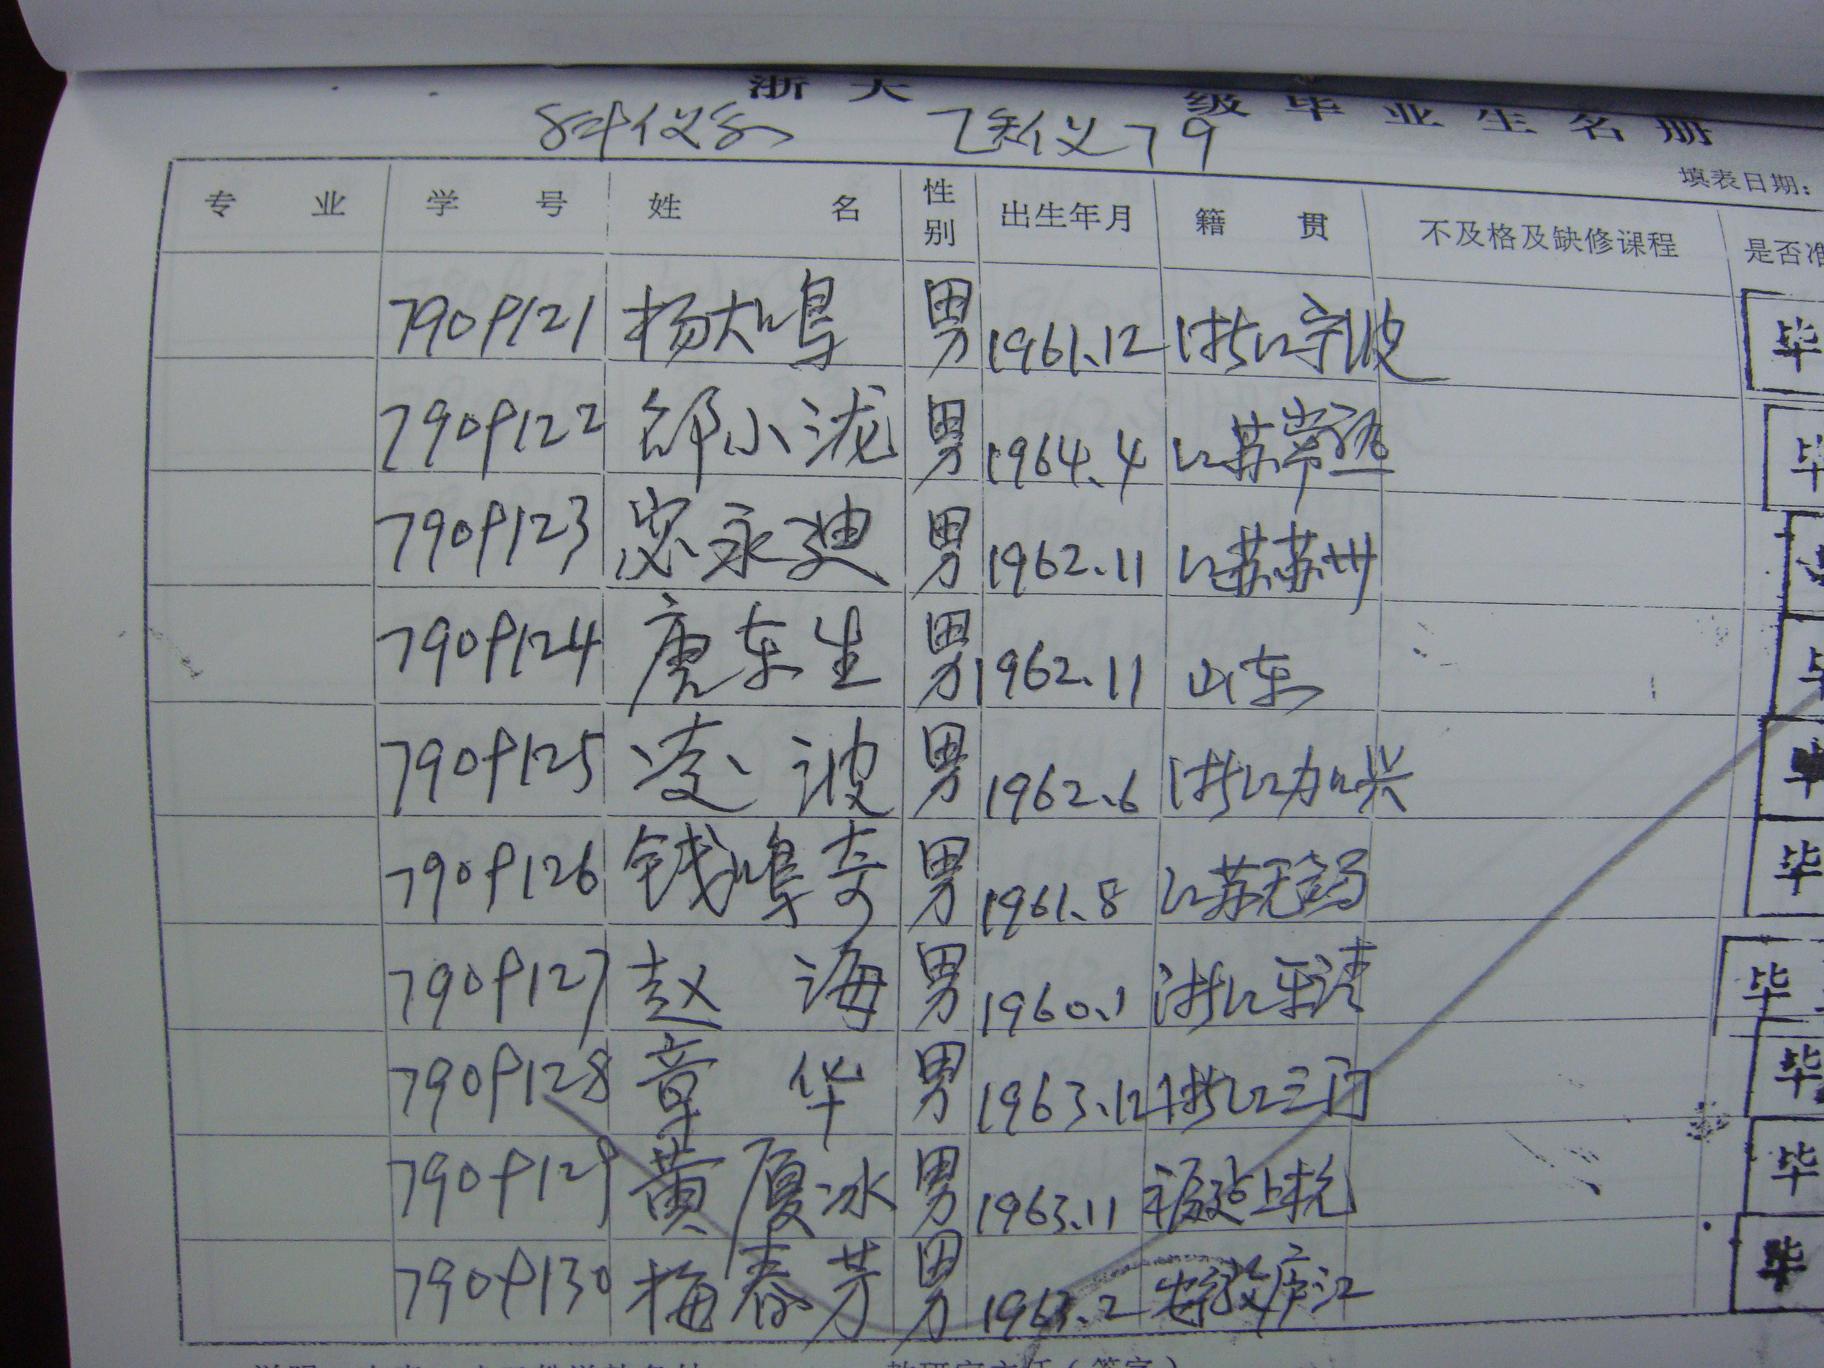 浙大 级毕业生名册
科仪系 医仪79
填表日期：
专业 学号 姓名 性别 出生年月 籍贯 不及格及缺修课程 是否准
7909121 杨大鸣 男 1961.12 浙江宁波 毕
7909122 邹小泷 男 1964.4 江苏常熟 毕
7909123 宓永迪 男 1962.11 江苏苏州
7909124 唐东生 男 1962.11 山东 毕
7909125 凌波 男 1962.6 浙江加兴 毕
7909126 钱鸣奇 男 1961.8 江苏无锡 毕
7909127 赵海 男 1960.1 浙江乐清 毕
7909128 章华 男 1963.12 浙江三门 毕
7909129 黄厦冰 男 1963.11 福建上杭 毕
7909130 梅春芳 男 1963.2 安徽庐江 毕